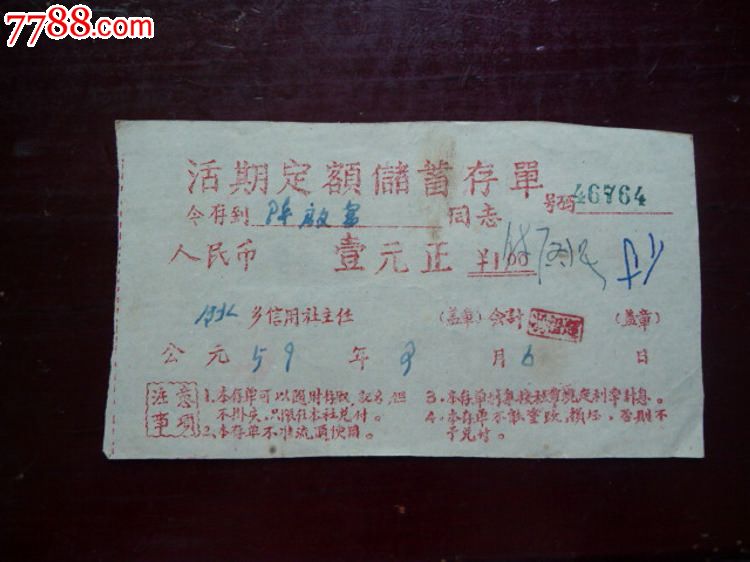 7788.com
活期定額儲蓄存單
号码 46764
今存到 陈 富 同志
人民币 壹元正 ¥1.00
乡信用社主任 (盖章) 会計 (盖章)
公元 59 年 月 6 日
注意事項
1. 本存单可以随时存取，記名，但不掛失，只限在本社兑付。
2. 本存单不准流通使用。
3. 本存单利息按社規定利率計息。
4. 本存单不能塗改，損坏，否則不予兑付。